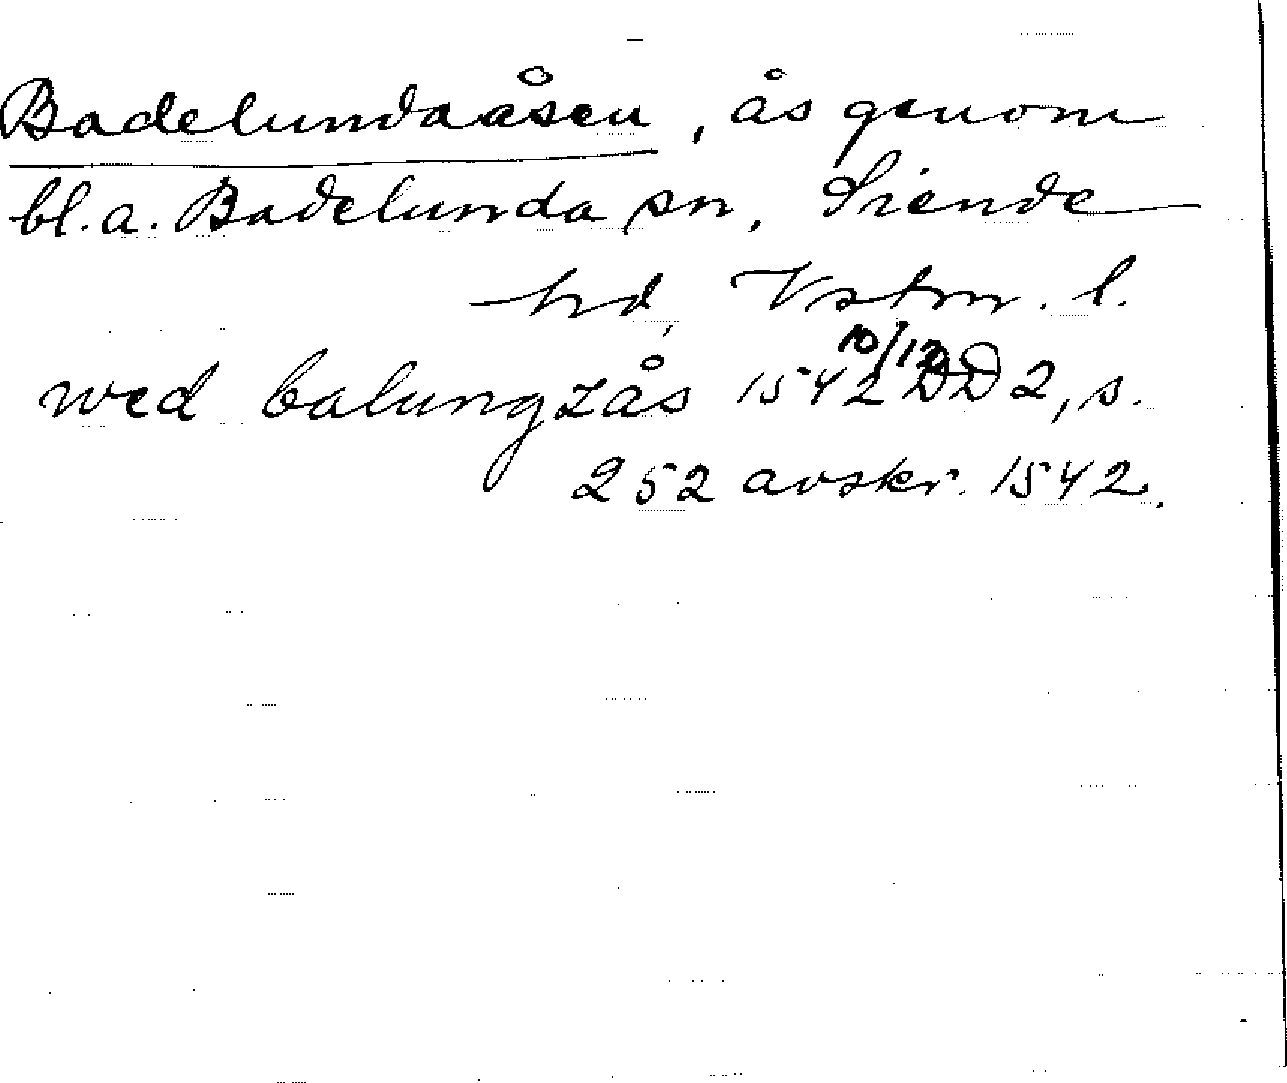 Badelundaåsen, ås genom
bl.a. Badelunda sn, Siende
hd, Vstm. l.
wed balungzås 1542 10/12 DD 2, s.
252 avskr. 1542.